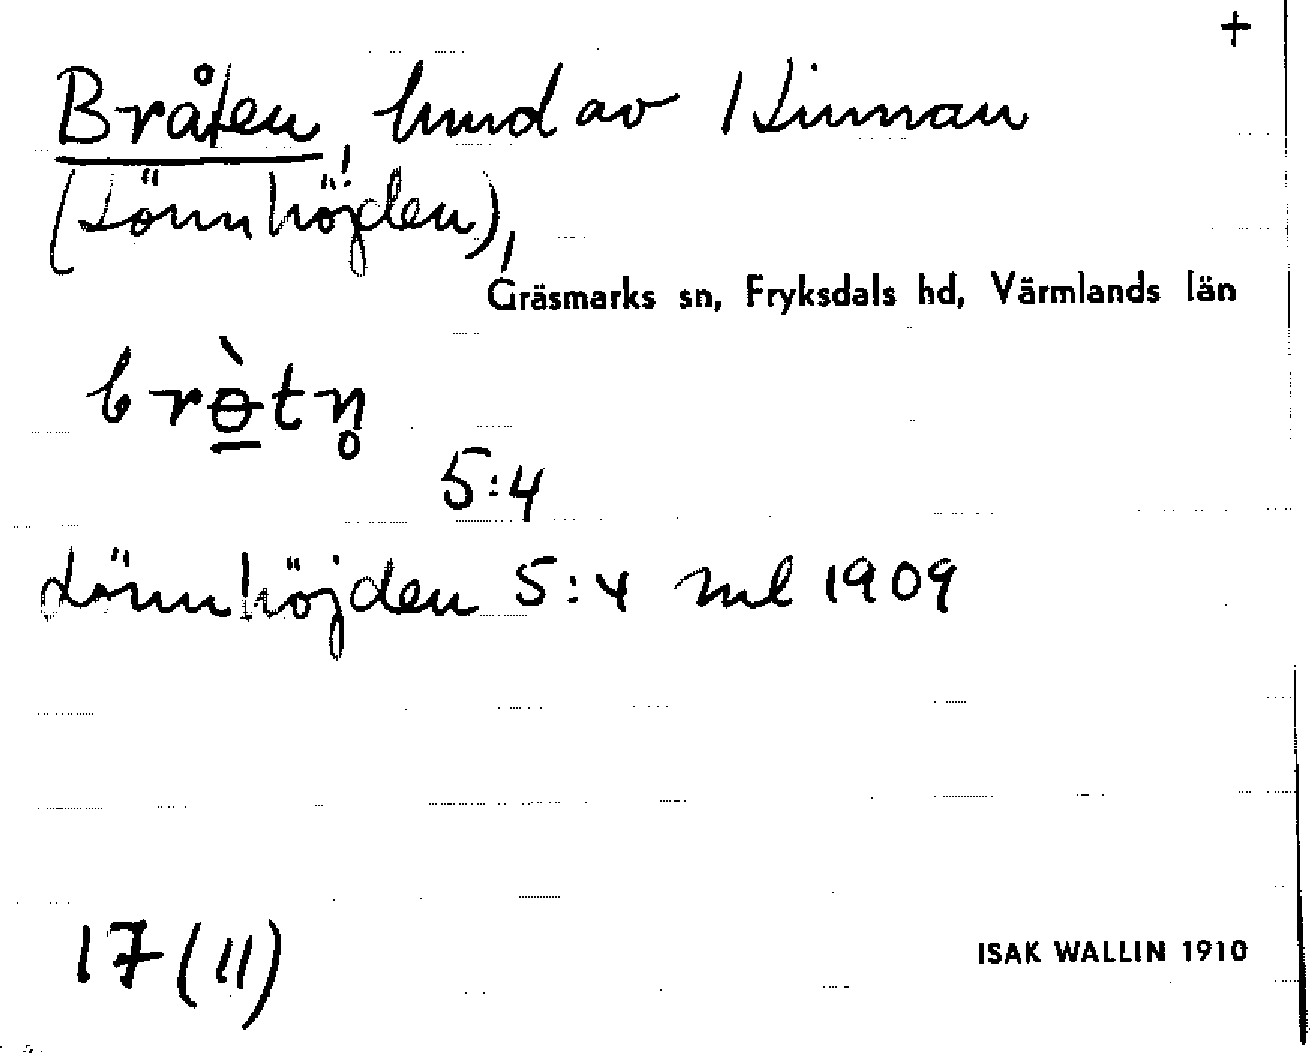 +
Bråten, hmd av 1 Linnan
(Lönnhöjden),
Gräsmarks sn, Fryksdals hd, Värmlands län
brө̱̀tn̥
5:4
Lönnhöjden 5:4 ml 1909
17 (11)
ISAK WALLIN 1910